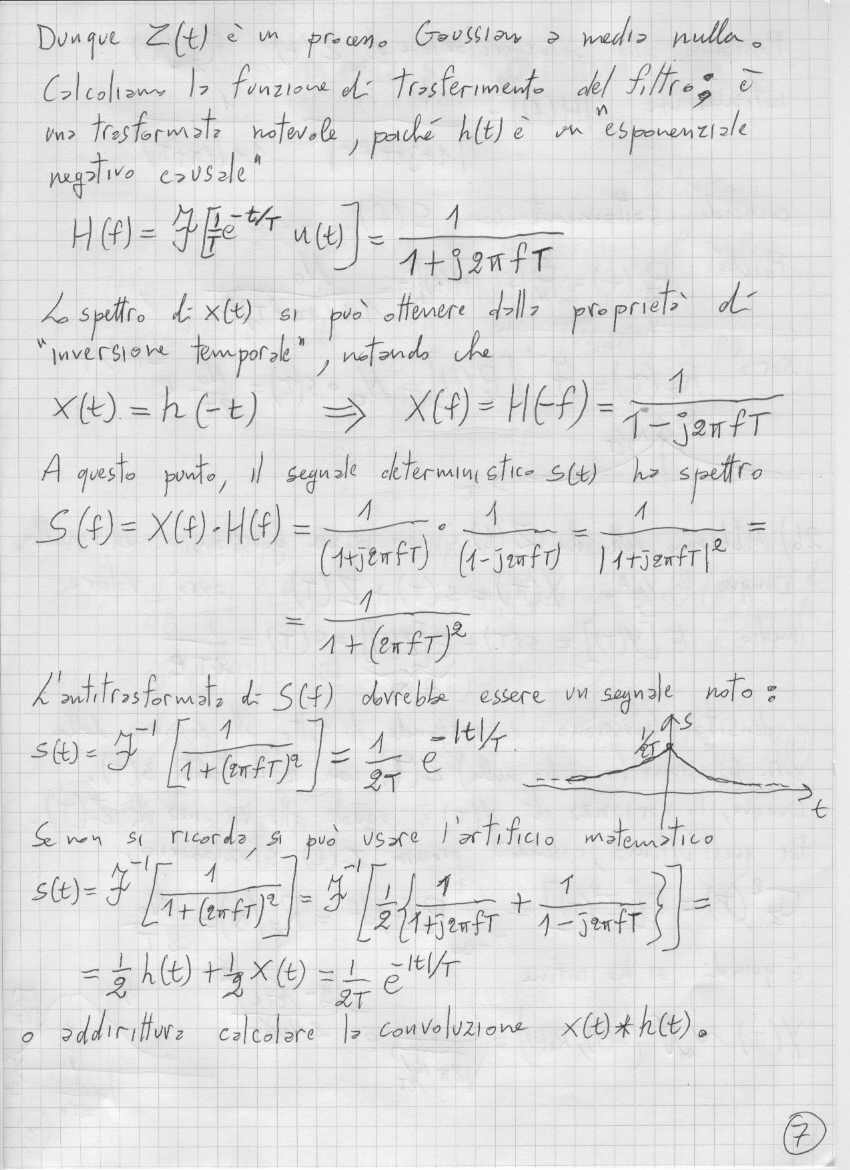 Dunque Z(t) è un processo Gaussiano a media nulla.
Calcoliamo la funzione di trasferimento del filtro; è
una trasformata notevole, poiché h(t) è un "esponenziale
negativo causale"
H(f) = ℱ[1/T e^{-t/T} u(t)] = 1/(1+j2πfT)
Lo spettro di x(t) si può ottenere dalla proprietà di
"inversione temporale", notando che
x(t) = h(-t) ⇒ X(f) = H(-f) = 1/(1-j2πfT)
A questo punto, il segnale deterministico s(t) ha spettro
S(f) = X(f)·H(f) = 1/(1+j2πfT) · 1/(1-j2πfT) = 1/|1+j2πfT|² =
= 1/(1+(2πfT)²)
L'antitrasformata di S(f) dovrebbe essere un segnale noto:
s(t) = ℱ⁻¹[1/(1+(2πfT)²)] = 1/2T e^{-|t|/T}
1/2T s
t
Se non si ricorda, si può usare l'artificio matematico
s(t) = ℱ⁻¹[1/(1+(2πfT)²)] = ℱ⁻¹[1/2{1/(1+j2πfT) + 1/(1-j2πfT)}] =
= 1/2 h(t) + 1/2 x(t) = 1/2T e^{-|t|/T}
o addirittura calcolare la convoluzione x(t)*h(t).
7